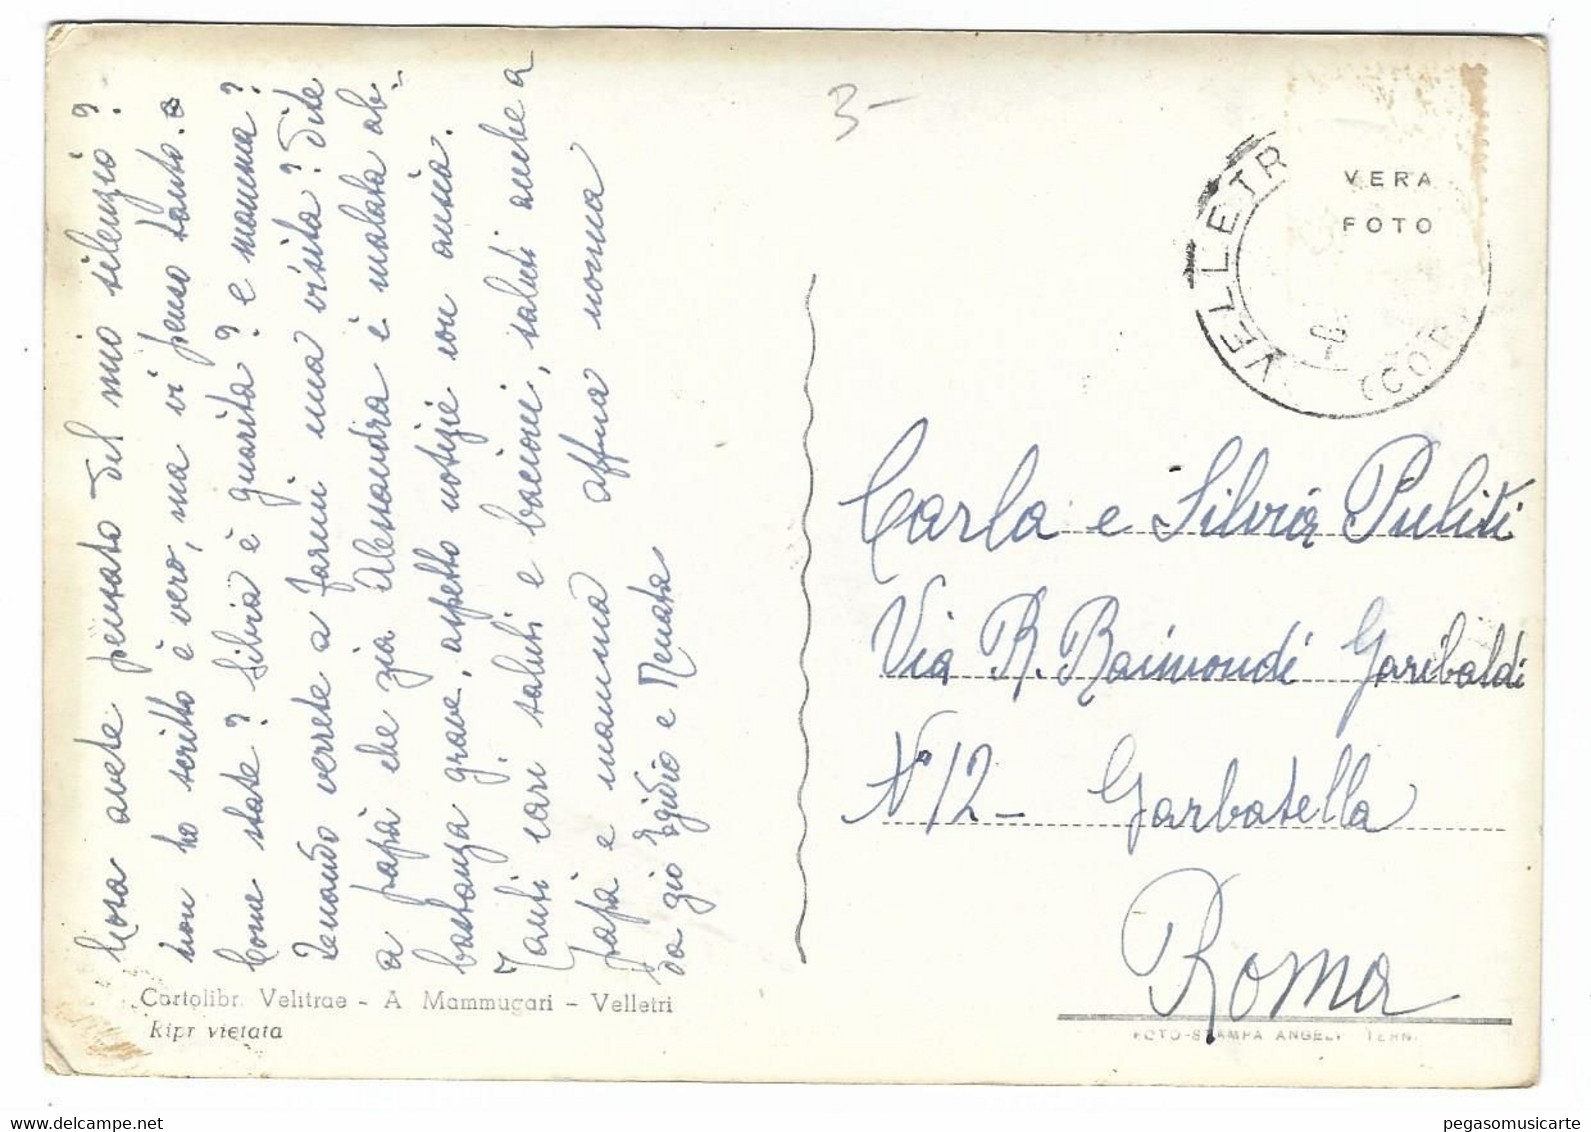 Cosa avete pensato del mio silenzio?
non ho scritto è vero, ma vi penso tanto.
Come state? Silvia è guarita? e mamma?
Quando verrete a farmi una visita? Dite
a papà che zia Alessandra è malata ab-
bastanza grave, aspetto notizie con ansia.
Tanti cari saluti e bacioni, saluti anche a
papà e mamma affma nonna
da zio Egidio e Renata
Cartolibr. Velitrae - A. Mammucari - Velletri
Ripr vietata
3-
VELLETR
(COR
VERA
FOTO
Carla e Silvia Puliti
Via R. Raimondi Garibaldi
N° 12 - Garbatella
Roma
FOTO-STAMPA ANGELI TERNI
pegasomusicarte